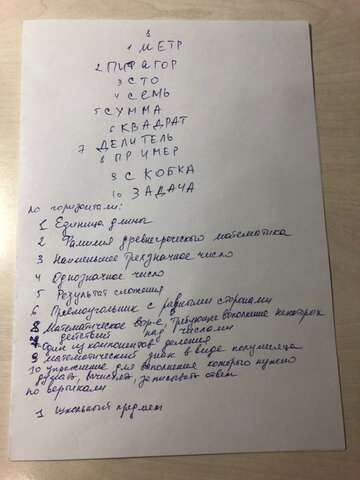 1
1 МЕТР
2 ПИФАГОР
3 СТО
4 СЕМЬ
5 СУММА
6 КВАДРАТ
7 ДЕЛИТЕЛЬ
8 ПРИМЕР
9 СКОБКА
10 ЗАДАЧА
По горизонтали:
1 Единица длины
2 Фамилия древнегреческого математика
3 Наименьшее трехзначное число
4 Однозначное число
5 Результат сложения
6 Прямоугольник с равными сторонами
8 Математическое требующее
действий над числами
7 Один из компонентов деления
9 математический знак в виде полумесяца
10 упражнение для выполнения которого нужно
думать, вычислять, записывать ответ
По вертикали
1 Школьный предмет